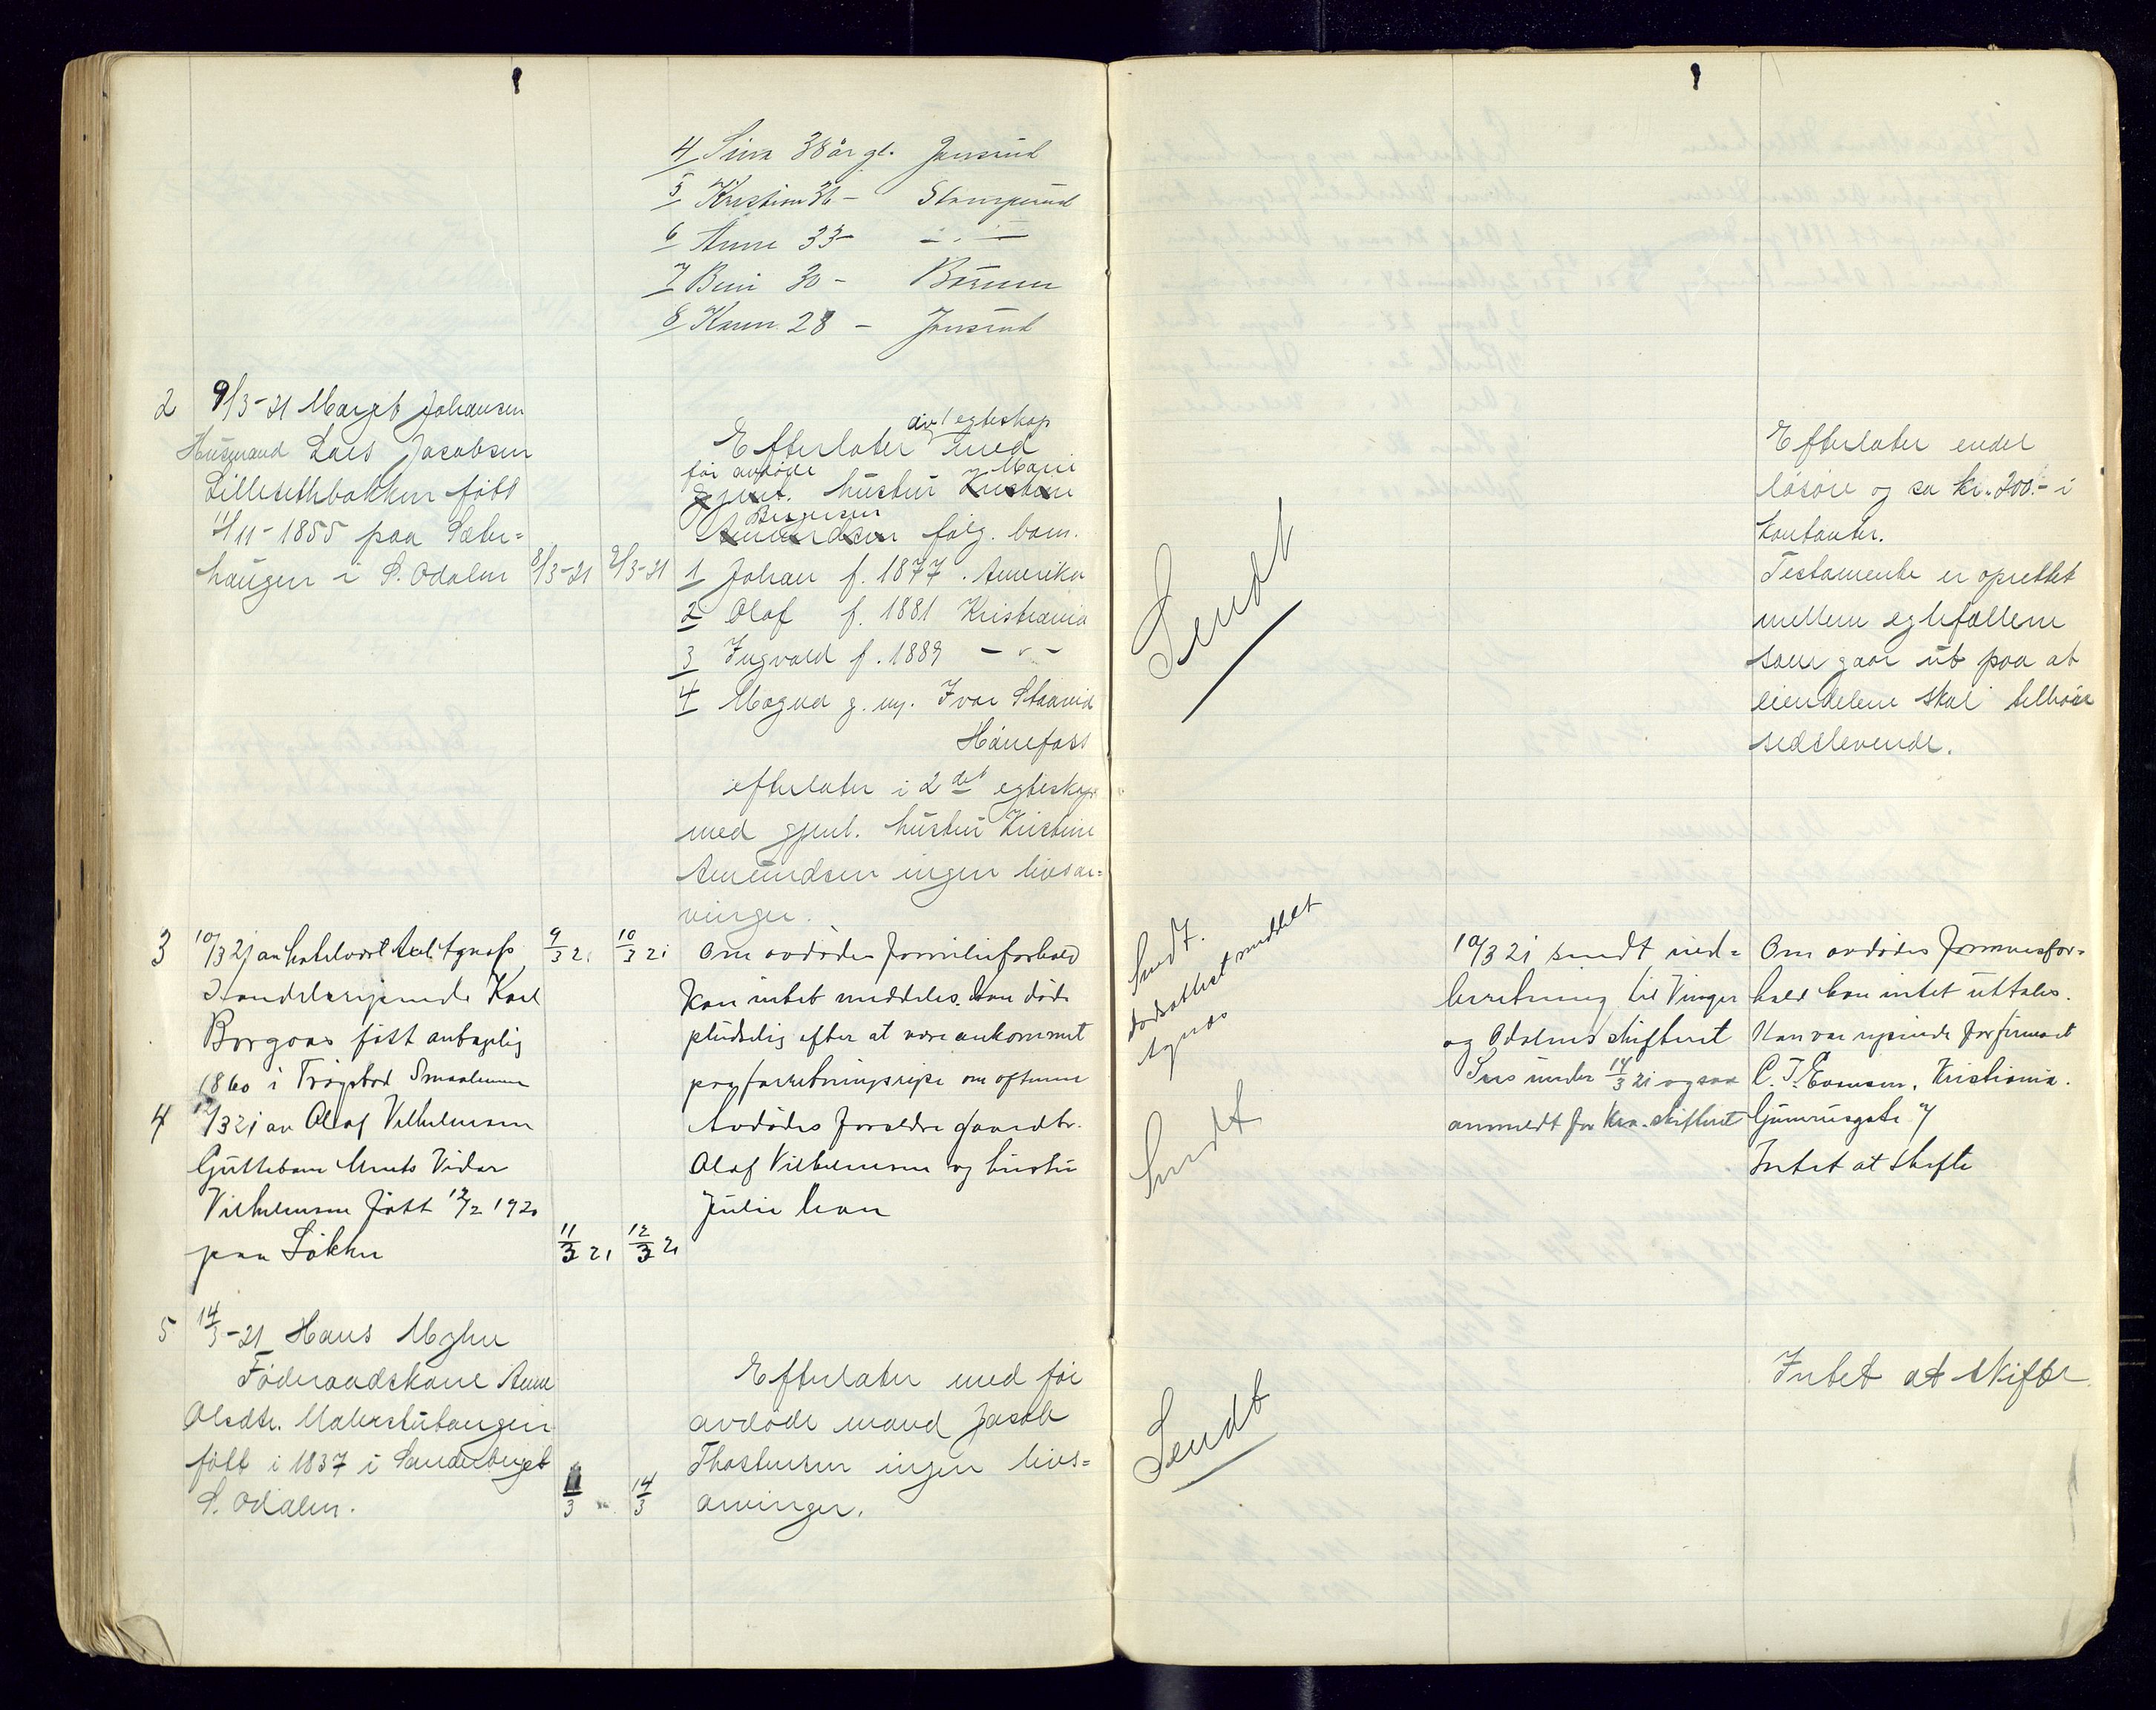 4 Sina 38 år gl. Jansrud
5 Kristian 36 - Stomperud
6 Anne 33 - - " -
7 Beni 30 - Börmen
8 Karen 28 - Jansrud
2 9/3-21 Margit Johansen
Husmand Lars Jacobsen
Lillesethbakken født
11/11-1855 paa Sæter=
haugen i S. Odalen 8/3-21 9/3-21
av 1 egteskap
Efterlater med
før avdøde Marie
gjenl. hustru Kristine
Bergersen
Amundsen følg. barn.
1 Johan f. 1877. Amerika
2 Olaf f. 1881 Kristiania
3 Ingvald f. 1889 - " -
4 Magna g. m. Ivar Staavid
Hönefoss
efterlater i 2det egteskap
med gjenl. hustru Kristine
Amundsen ingen livsar=
vinger.
Sendt
Efterlater endel
løsøre og ca kr. 200.- i
kontanter.
Testamente er oprettet
mellem egtefællerne
som gaar ut paa at
eiendelene skal tilhøre
ledslevende.
3 10/3 21 av hotelvært Axel Agnæss 9/3 21 10/3 21
Handelsreisende Karl
Borgaas født antagelig
1860 i Trøgstad Smaalenene
Om avdødes familieforhold
kan intet meddeles. Han døde
pludselig efter at være ankommet
paa forretningsreise om aftenen
Sendt.
dødsattest meddelt
Agnæs
10/3 21 sendt ind=
beretning til Vinger
og Odalens skifteret
Sees under 14/3 21 ogsaa
anmeldt for Kra. skifteret
Om avdødes formuesfor=
hold kan intet uttales.
Han var reisende for firmaet
C. T. Evensen, Kristiania.
4 12/3 21 av Olaf Vilhelmsen
Guttebarn Knuts Vidar
Vilhelmsen født 12/2 1920
paa Løkken 11/3 21 12/3 21
Avdødes forældre gaardbr.
Olaf Vilhelmsen og hustru
Julie
Sendt
Intet at skifte
5 14/3-21 Hans Moglen
Føderaadskone Anne
Olsdtr. Malerstutangen
født i 1837 i Sanderberget
S. Odalen. 11/3 14/3
Efterlater med før
avdøde mand Jacob
Thostensen ingen livs=
arvinger.
Sendt
Intet at skifte